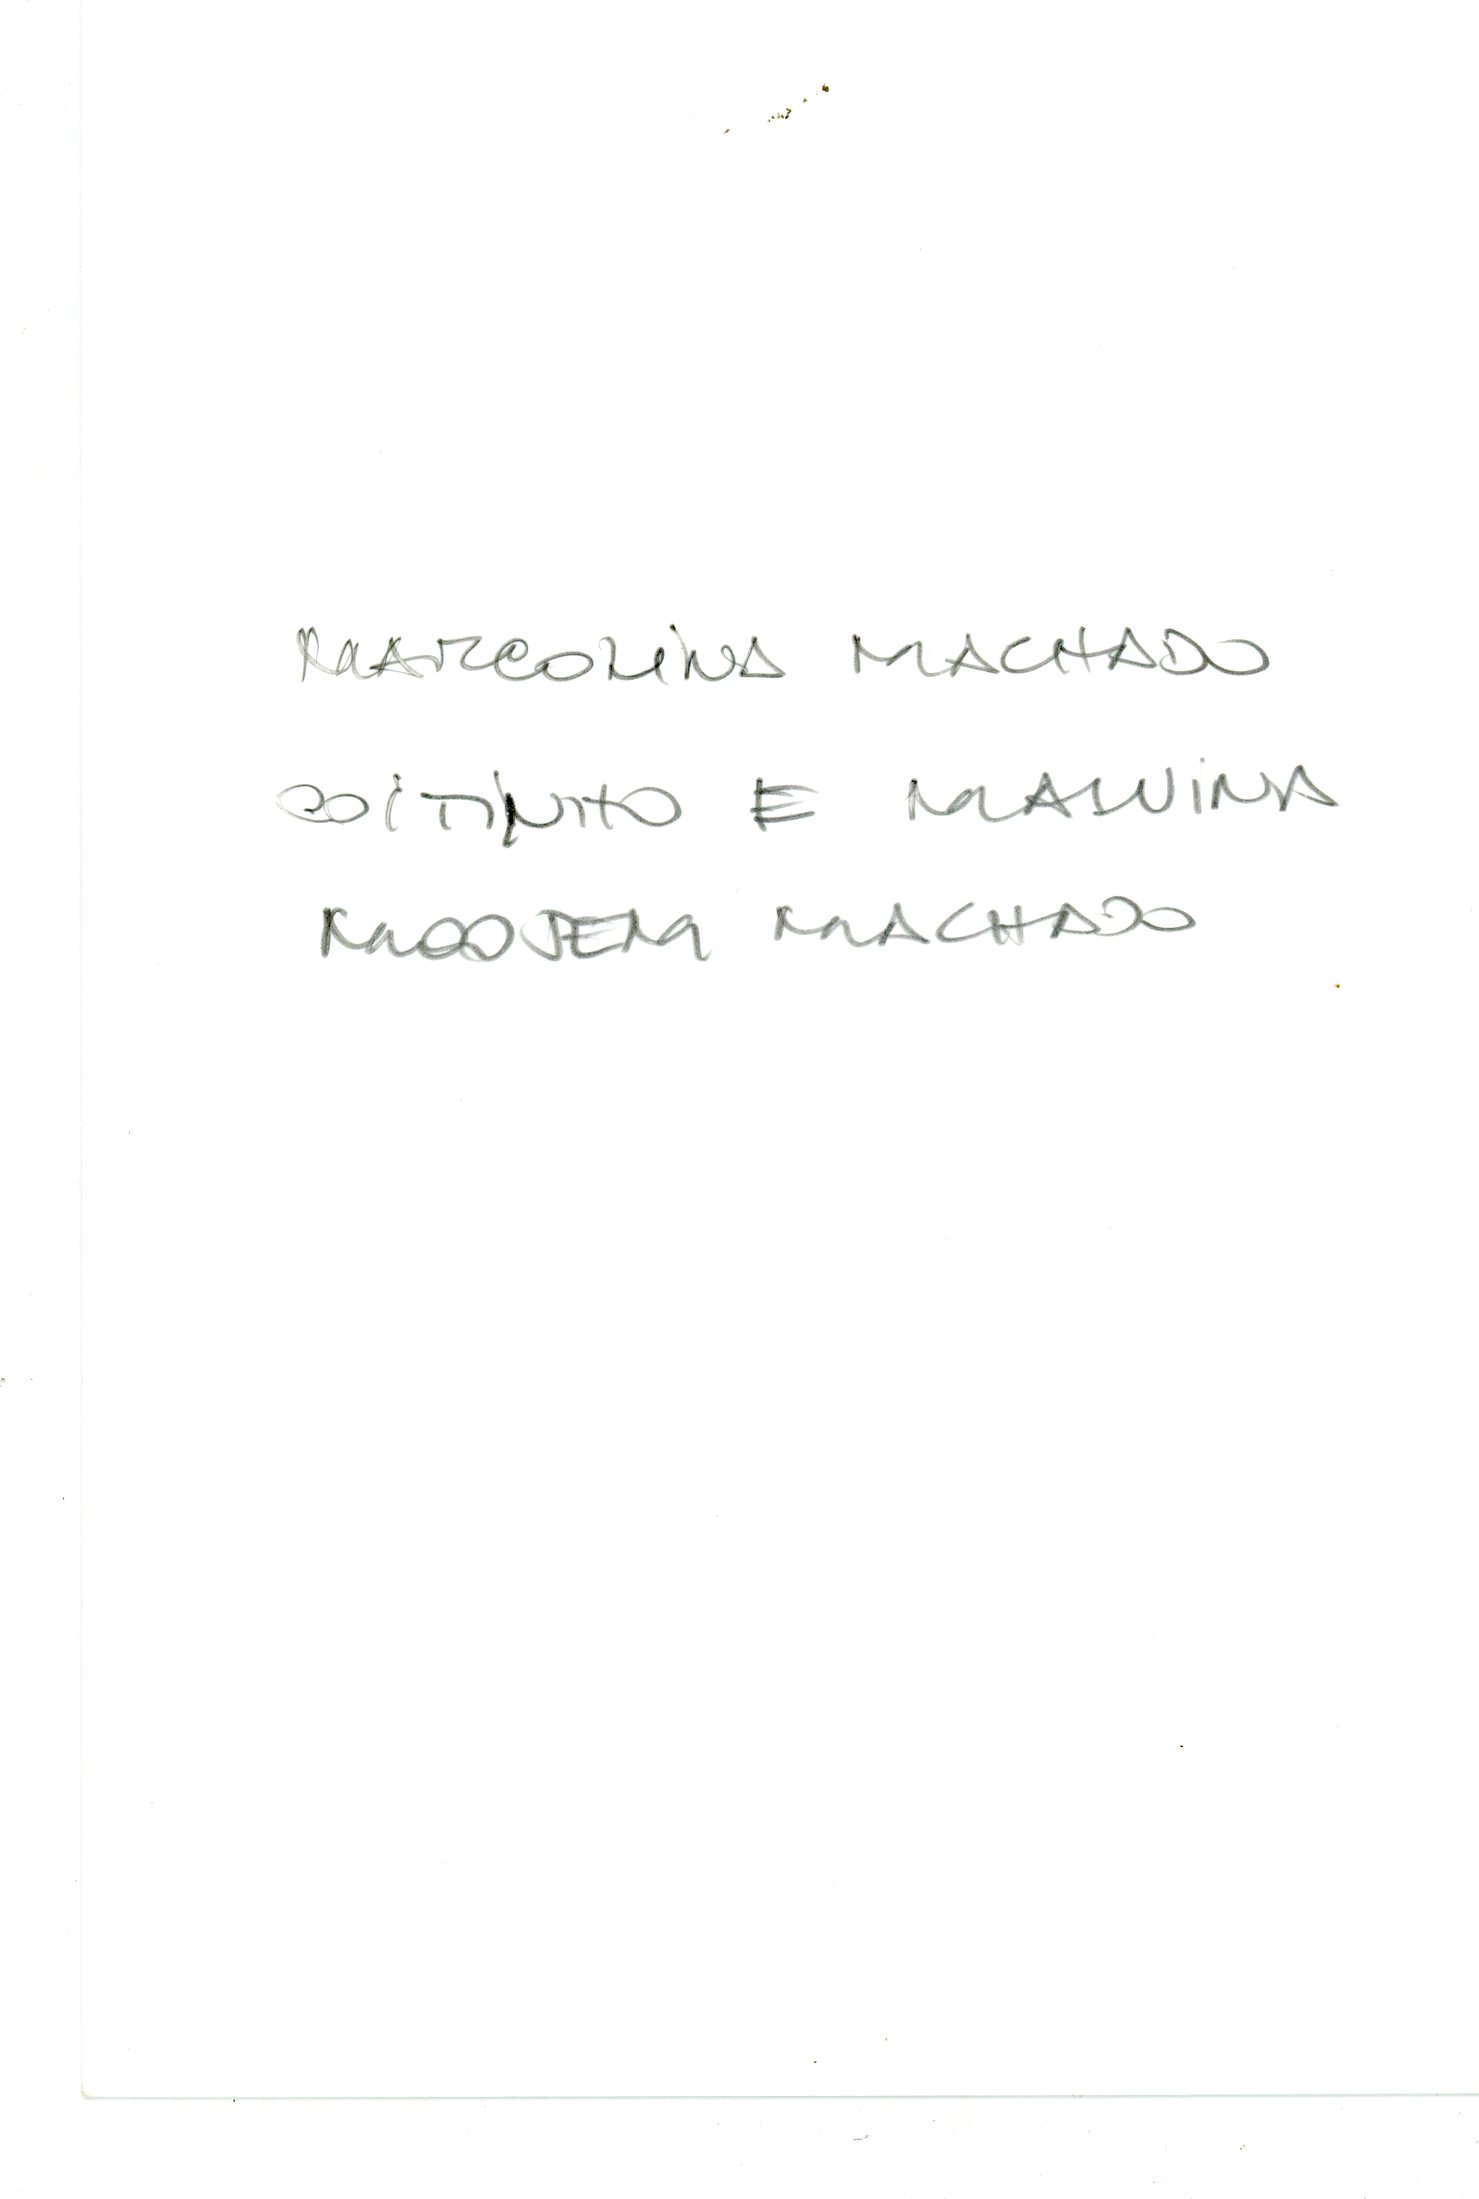 MARCOLINA MACHADO
COITINHO E MALVINA
MACHADO